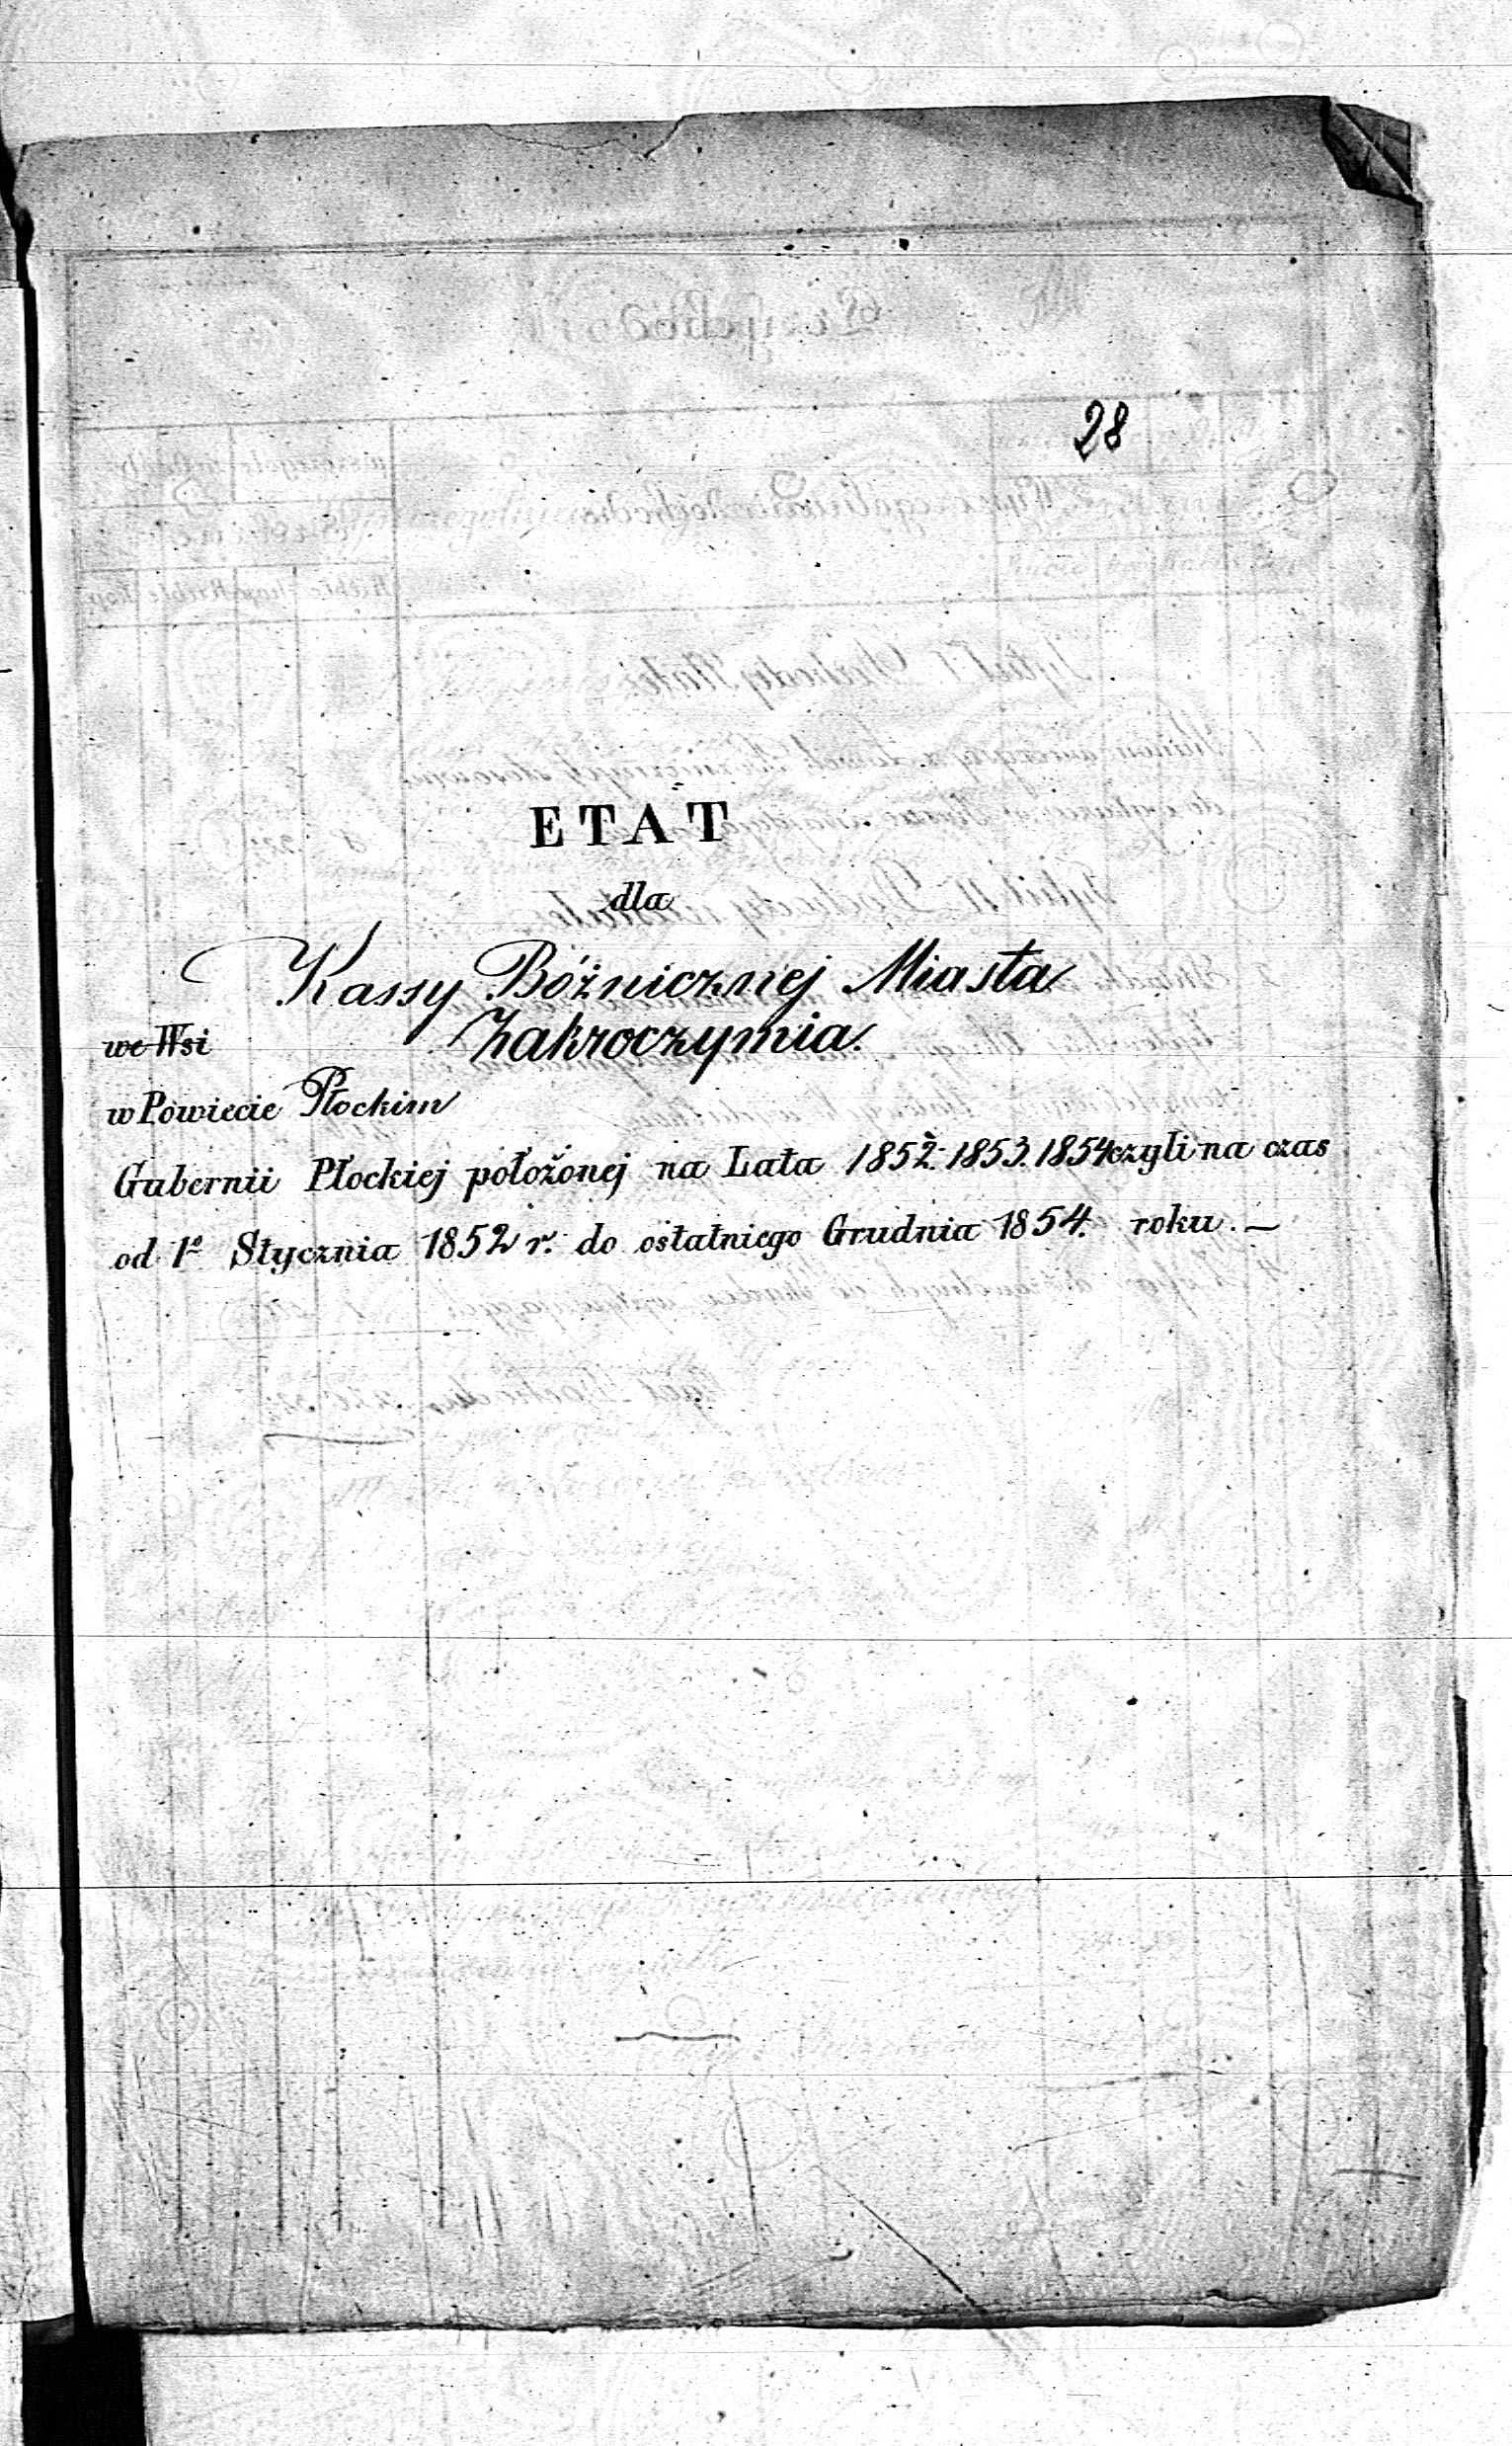 28
ETAT
dla
Kassy Bóżnicznej Miasta
we Wsi Zakroczymia.
w Powiecie Płockim
Gubernii Płockiej położonej na Lata 1852. 1853. 1854 czyli na czas
od 1o Stycznia 1852 r. do ostatniego Grudnia 1854. roku. —